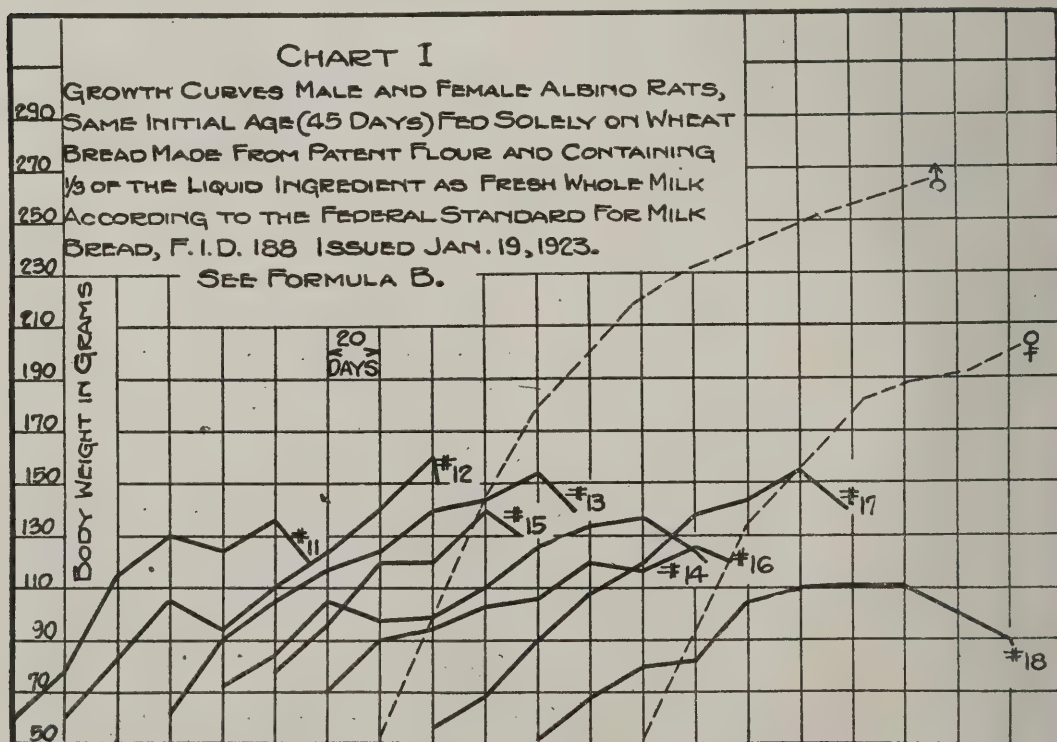 CHART I
GROWTH CURVES MALE AND FEMALE ALBINO RATS,
SAME INITIAL AGE (45 DAYS) FED SOLELY ON WHEAT
BREAD MADE FROM PATENT FLOUR AND CONTAINING
1/3 OF THE LIQUID INGREDIENT AS FRESH WHOLE MILK
ACCORDING TO THE FEDERAL STANDARD FOR MILK
BREAD, F.I.D. 188 ISSUED JAN. 19, 1923.
SEE FORMULA B.
290
270
250
230
210
190
170
150
130
110
90
70
50
BODY WEIGHT IN GRAMS
20
DAYS
♂
♀
#11
#12
#13
#15
#14
#16
#17
#18